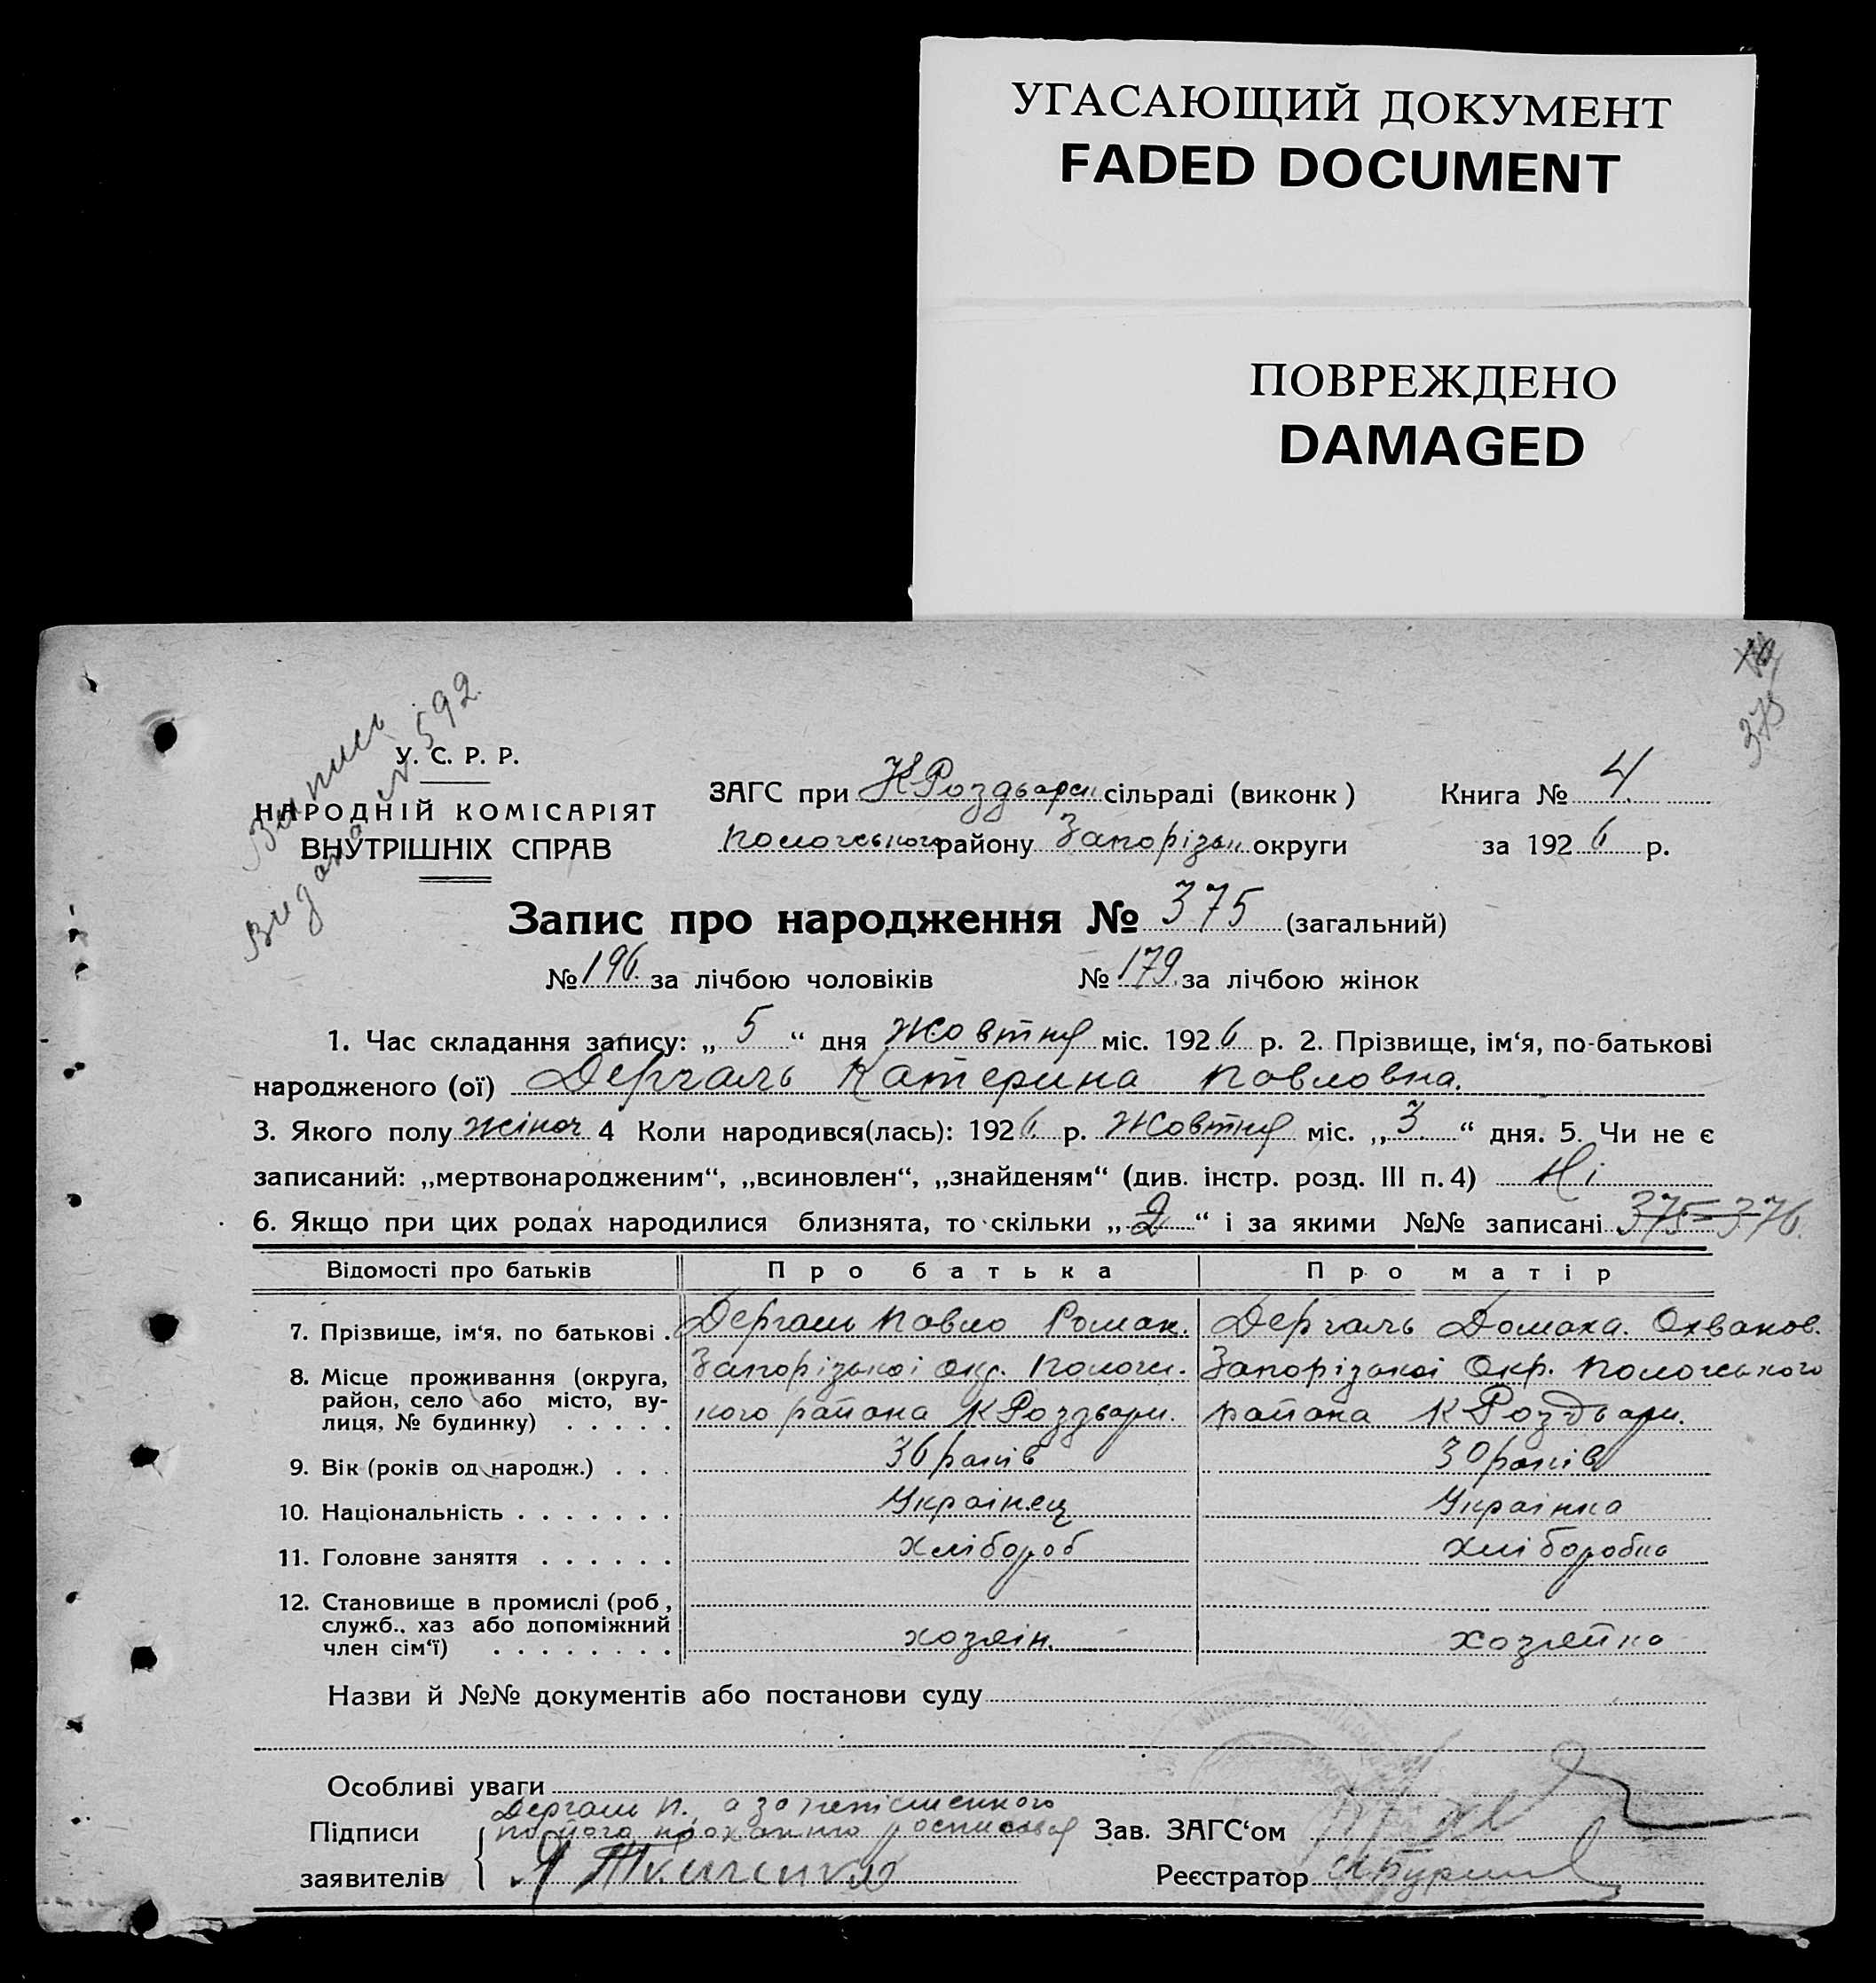 УГАСАЮЩИЙ ДОКУМЕНТ
FADED DOCUMENT
ПОВРЕЖДЕНО
DAMAGED
375
Запись
видано № 592.
У. С. Р. Р.
НАРОДНІЙ КОМІСАРІЯТ
ВНУТРІШНІХ СПРАВ
ЗАГС при К Роздварсн сільраді (виконк) Книга № 4.
Пологського району Запорізьк округи за 1926 р.
Запис про народження № 375 (загальний)
№ 196. за лічбою чоловіків № 179. за лічбою жінок
1. Час складання запису: „ 5 “ дня Жовтня міс. 1926 р. 2. Прізвище, ім‘я, по-батькові
народженого (ої) Дергаль Катерина Павловна.
3. Якого полу жіноч 4 Коли народився(лась): 1926. р. Жовтня міс. „ 3. “ дня. 5. Чи не є
записаний: „мертвонародженим“, „всиновлен“, „знайденям“ (див. інстр. розд. III п. 4) Ні
6. Якщо при цих родах народилися близнята, то скільки „ 2 “ і за якими №№ записані 375=376.
Відомості про батьків Про батька Про матір
7. Прізвище, ім‘я, по батькові . Дергаль Павло Роман. Дергаль Домаха. Охванов.
8. Місце проживання (округа, Запорізької Окр. Пологсь. Запорізької Окр. Пологського
район, село або місто, ву-
лиця, № будинку) . . . . . кого района К Роздвари. района К Роздвари.
9. Вік (років од народж.) . . . 36 років 30 років
10. Національність . . . . . . . Українец Українка
11. Головне заняття . . . . . . Хлібороб Хліборобка
12. Становище в промислі (роб ,
служб., хаз або допоміжний
член сім‘ї) . . . . . . . . хозяін. хозяйка
Назви й №№ документів або постанови суду
Особливі уваги
Дергаль П. а за непісьменного
Підписи по його проханню росписався Зав. ЗАГС‘ом
заявителів Я Реєстратор